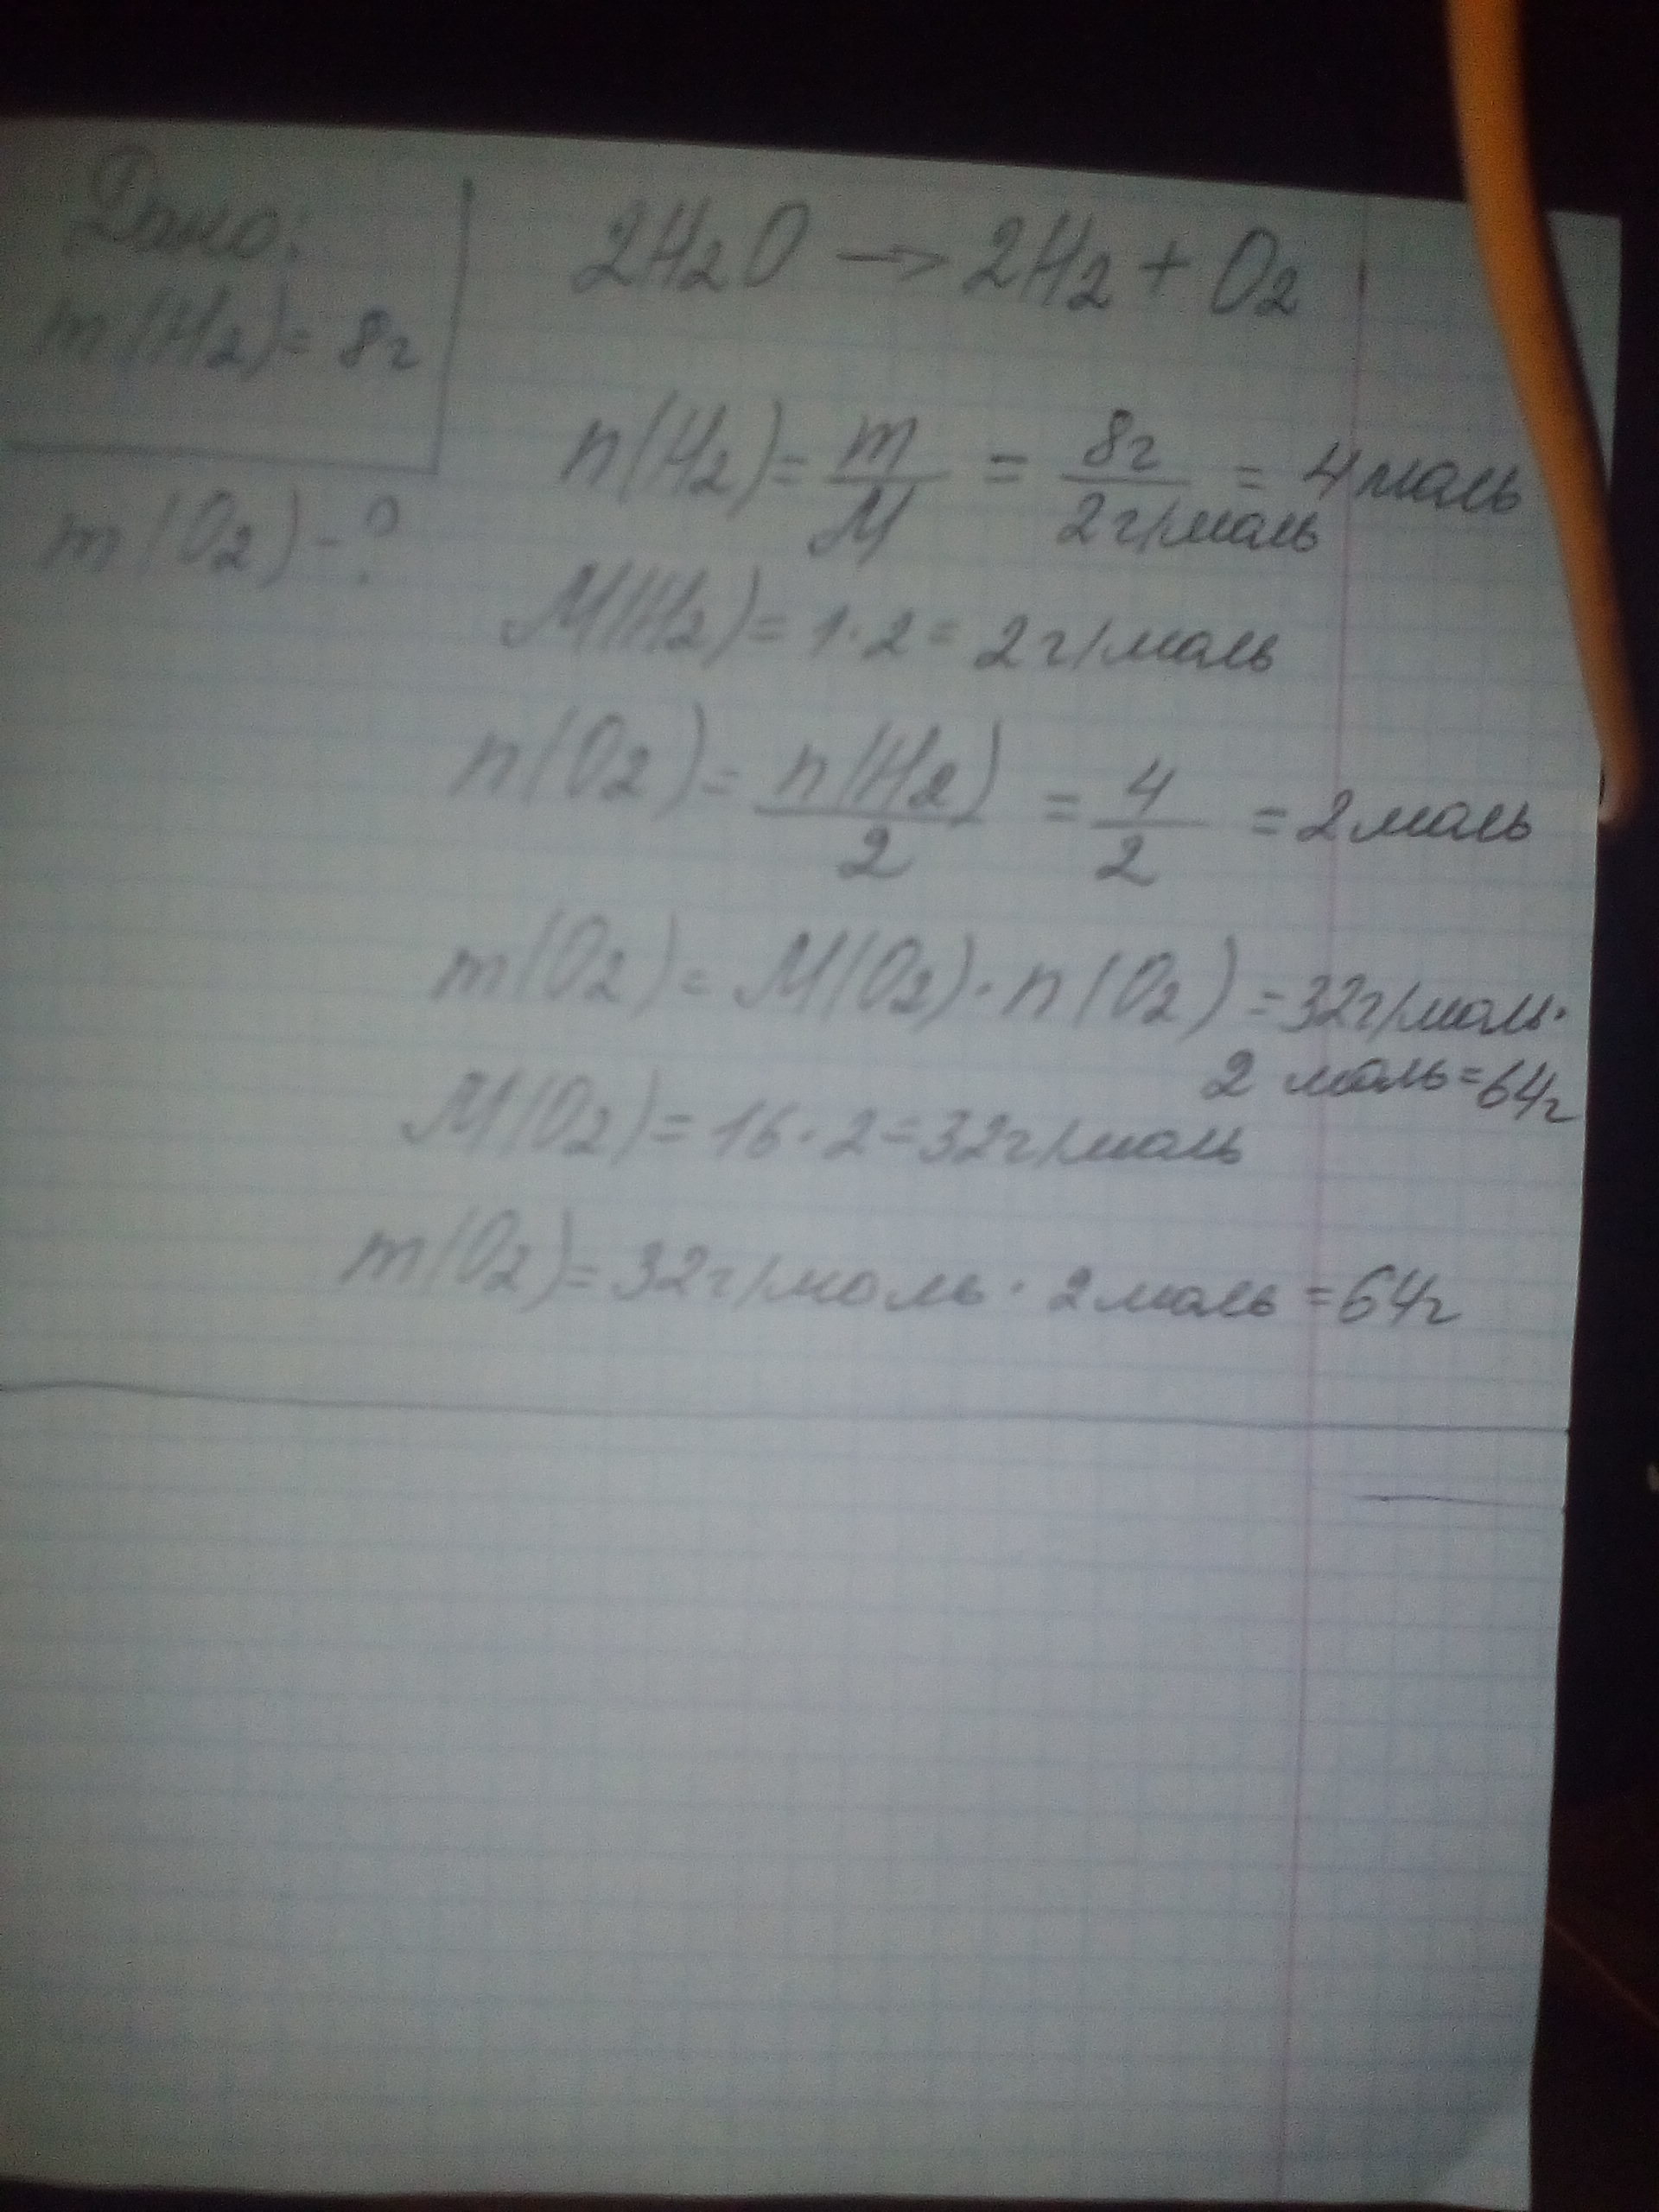 Дано:
m(H₂) = 8г
m(O₂) - ?
2H₂O → 2H₂ + O₂
n(H₂) = m/M = 8г/2г/моль = 4 моль
M(H₂) = 1 · 2 = 2 г/моль
n(O₂) = n(H₂)/2 = 4/2 = 2 моль
m(O₂) = M(O₂) · n(O₂) = 32г/моль ·
2 моль = 64г
M(O₂) = 16 · 2 = 32г/моль
m(O₂) = 32г/моль · 2 моль = 64г